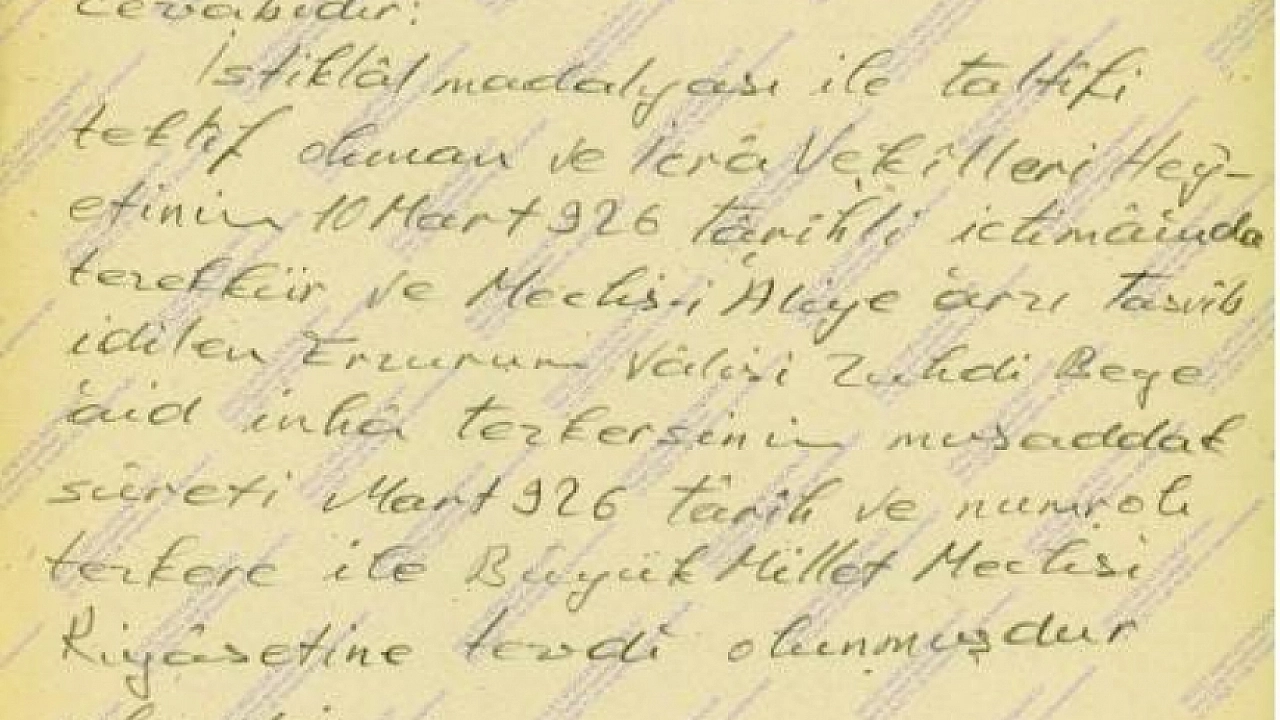 cevabıdır:
İstiklâl madalyası ile taltîfi
teklif olunan ve İcrâ Vekîlleri Hey-
etinin 10 Mart 926 târihli ictimâında
tezekkür ve Meclis-i Âliye arzı tasvîb
idilen Erzurum Vâlisi Zuhdi Beye
âid inhâ tezkersinin musaddak
sûreti Mart 926 târih ve numrolu
tezkere ile Büyük Millet Meclisi
Riyâsetine tevdî olunmuşdur